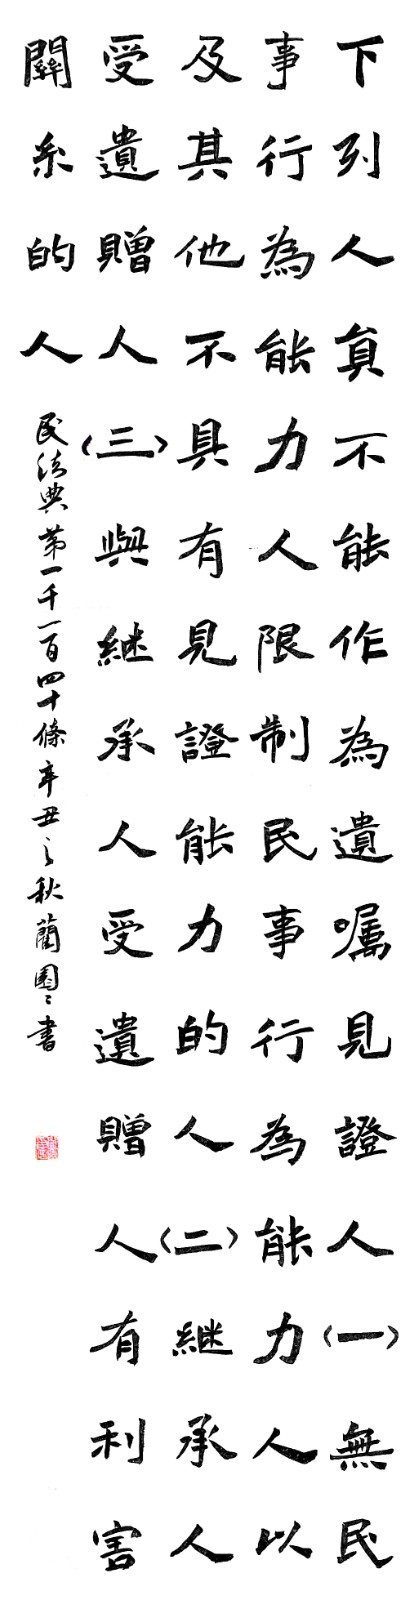 下列人員不能作為遺嘱見證人（一）無民
事行為能力人限制民事行為能力人以
及其他不具有見證能力的人（二）継承人
受遺贈人（三）與継承人受遺贈人有利害
關系的人
民法典第一千一百四十條辛丑之秋藺圓〻書